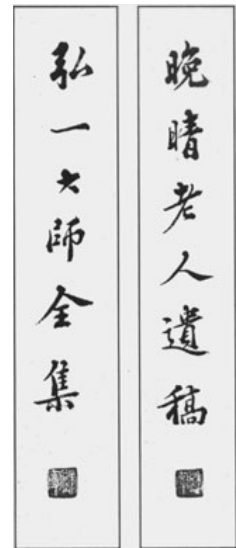 晚晴老人遺稿
弘一大師全集